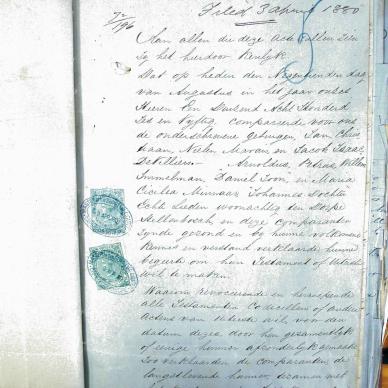 Filed 3 April 1880
72/196
Aan allen die deze Acte zullen zien
zij het hierdoor Kenlyk
Dat op heden den Negentienden dag
van Augustus in het jaar onzes
Heeren Een Duizend Acht Honderd
Zes en Vyftig, compareerde voor ons
de onderschrevene getuigen Jan Chris
tiaan, Neeln Marais en Jacob Izaac
De Villiers — Arnoldus, Petrus, Willem
Immelman, Daniel Zoon, en Maria
Cicilia Minnaar Johannes dochter
Echte Lieden woonachtig te Dorpe
Stellenbosch en deze comparanten
zynde gezond en by hunne volkomen
Kennis en verstand verklaarde hunne
begeerte om hen Testament of Uiterste
wil te maken.
Waarom renoceerende en herroepende
alle Testamenten Codicillen of andere
Actens van Uiterste wil, voor den
datum dezes door hen gezamentlyk
of eenige hunner afzonderlyk gemaakt
Zoo verklaarden de comparanten de
langstlevende hunner te zamen met